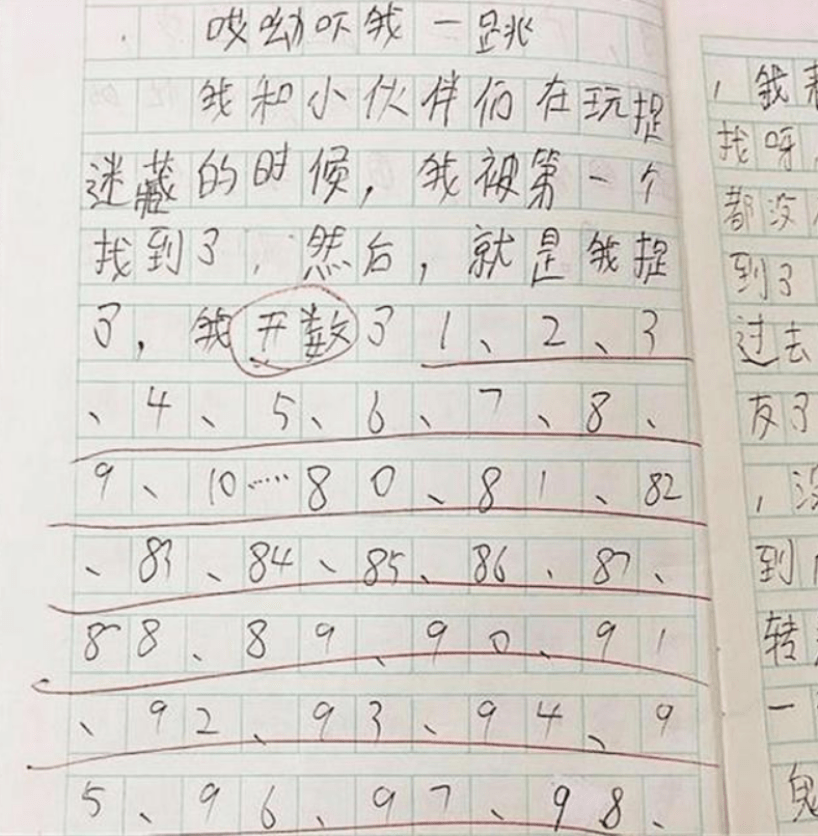 哎呦吓我一跳
我和小伙伴们在玩捉
迷藏的时候，我被第一个
找到了，然后，就是我捉
了，我开数了1、2、3
、4、5、6、7、8、
9、10……80、81、82
、83、84、85、86、87、
88、89、90、91
、92、93、94、9
5、96、97、98、
，我
找呀
都没
到了
过去
友了
，没
到
转
一
鬼